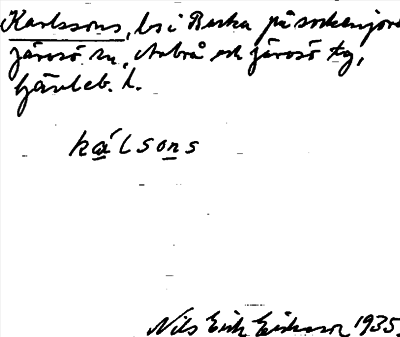 Karlssons, bs i Berka på sockenjord
Järvsö sn, Arbrå och Järvsö tg,
Gävleb. l.
kálsons
Nils Erik Eriksson 1935.